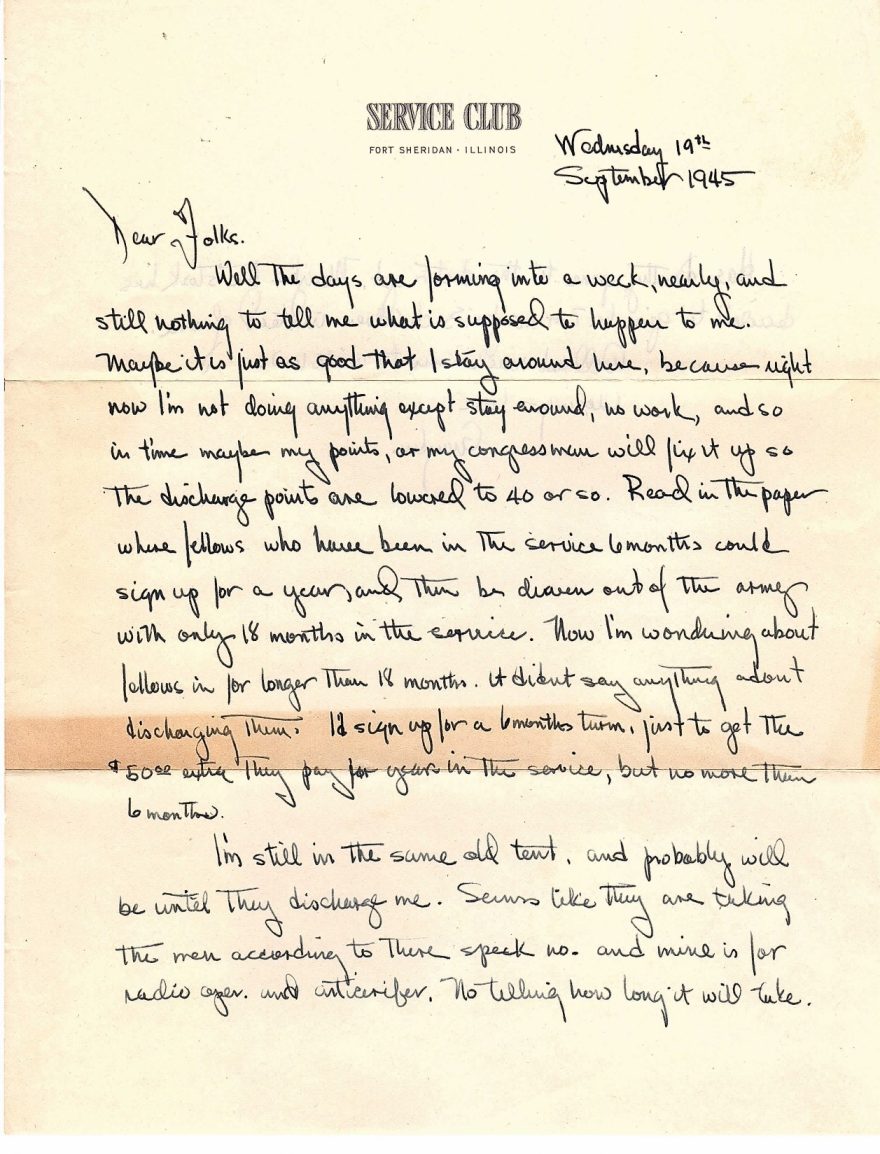 SERVICE CLUB
FORT SHERIDAN · ILLINOIS
Wednesday 19th
September 1945
Dear Folks.
Well the days are forming into a week, nearly, and
still nothing to tell me what is supposed to happen to me.
Maybe it is just as good that I stay around here, because right
now I'm not doing anything except stay around, no work, and so
in time maybe my points, or my congressman will fix it up so
the discharge points are lowered to 40 or so. Read in the paper
where fellows who have been in the service 6 months could
sign up for a year, and then be out of the army
with only 18 months in the service. Now I'm wondering about
fellows in for longer than 18 months. it didnt say anything about
discharging them. I'd sign up for a 6 months turm, just to get the
$50.00 extra they pay for years in the service, but no more than
6 months.
I'm still in the same old tent, and probably will
be until they discharge me. Seems like they are taking
the men according to there speck no. and mine is for
radio oper. and. No telling how long it will take.